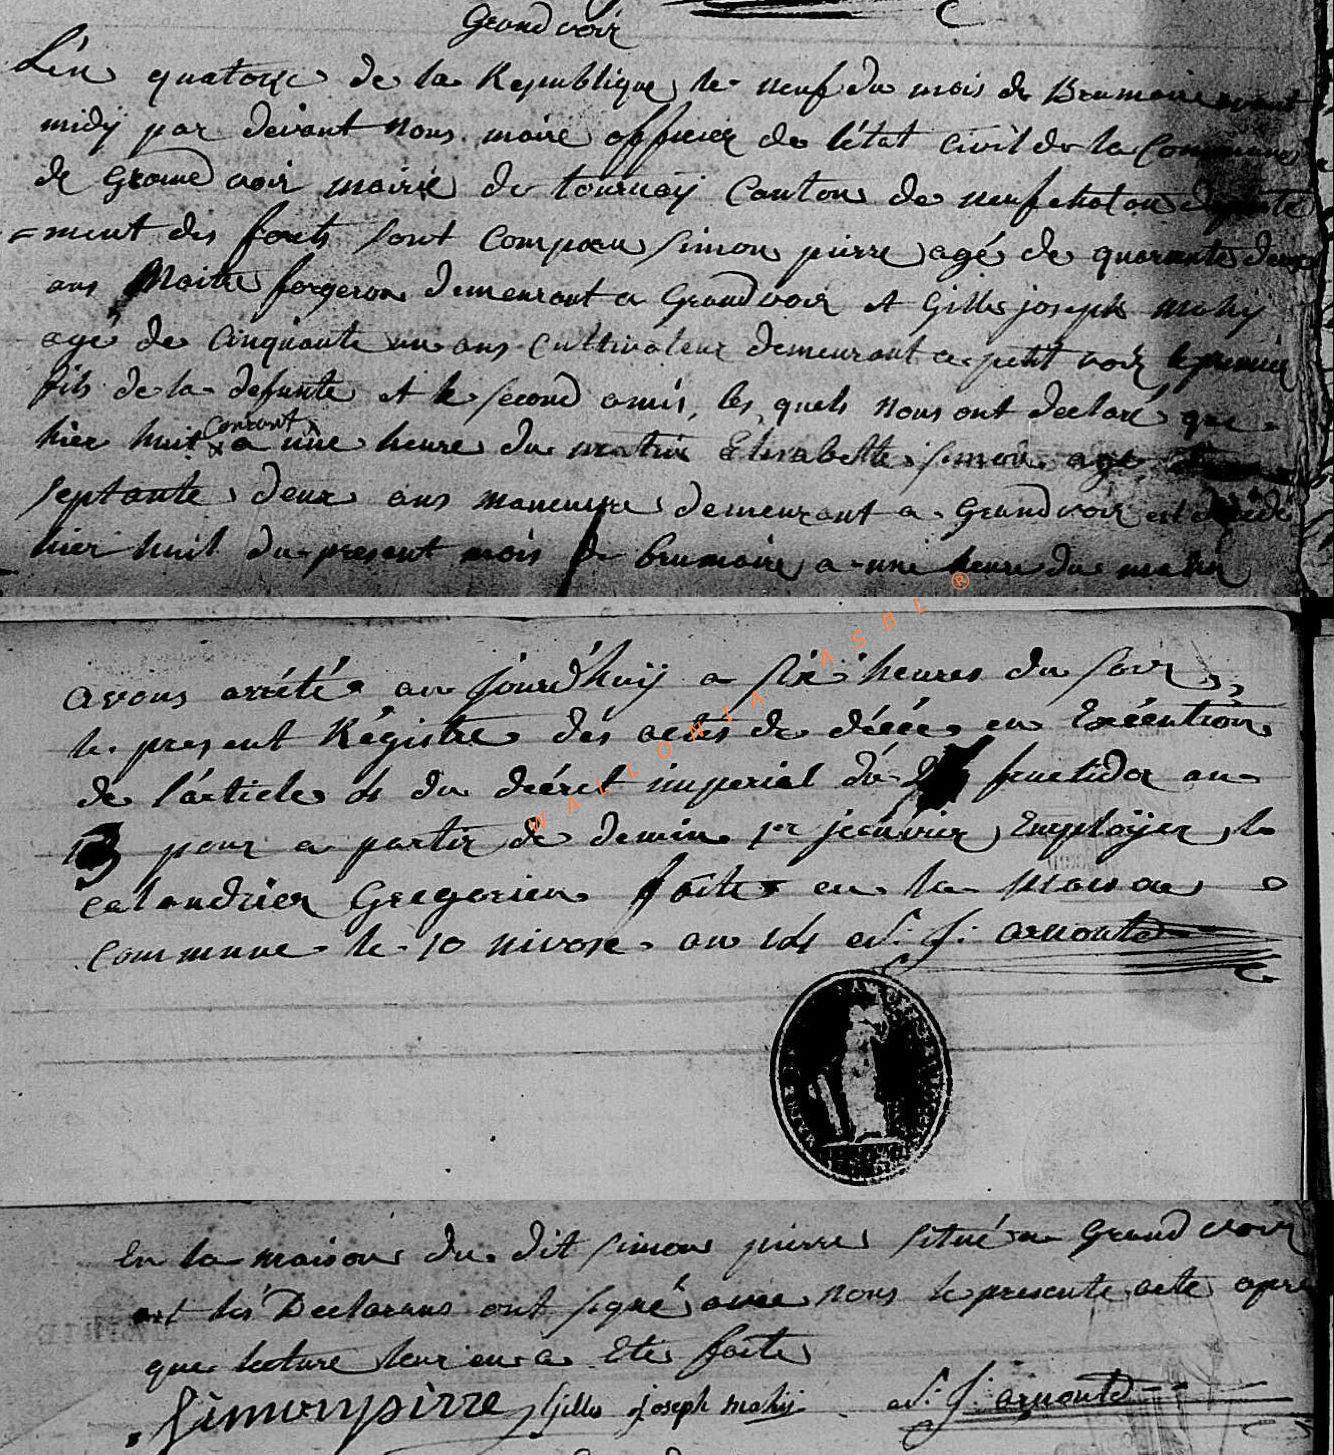 Grandvoir
L'én quatorze de la Republique le neuf du mois de Brumaire avant
midÿ par devant nous maire officier de l'état Civil de la Commune
de Grand voir mairie de tournaÿ Canton de neufchatau departe
=ment des forets sont comparu simon pierre agé de quarante deux
ans Maitre forgeron demeurant a Grandvoir et Gille joseph mahÿ
agé de Cinquante un ans Cultivateur demeurant a petit voir le premier
fils de la defunte et le second amis, les quels nous ont declaré que
hier huit courant a une heure du matin Elisabette simon agé
septante deux ans maneuvre demeurant a Grandvoir est décédé
hier huit du present mois de brumaire a une heure du matin
avons arrété au jourd'huÿ a six heures du soir,,
le present Régistre dés actes de décée en Exécution
de l'article 4 du décret imperial du fructidor an
13 pour a partir de demin 1er jeanvier Emploÿer le
calandrier Gregorien faite en la maison
commune le 10 nivose an 14 J: arnould
WALLONIA ASBL ®
En la maison du dit simon pierre situé a Grand voir
et lés Declarans ont signé avec nous le presente acte apre
que lecture leur en a Eté faite
Simonpierre Gille joseph mahÿ J: arnould